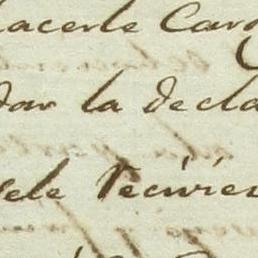 hacerle Carg
dar la decla
sele recivies